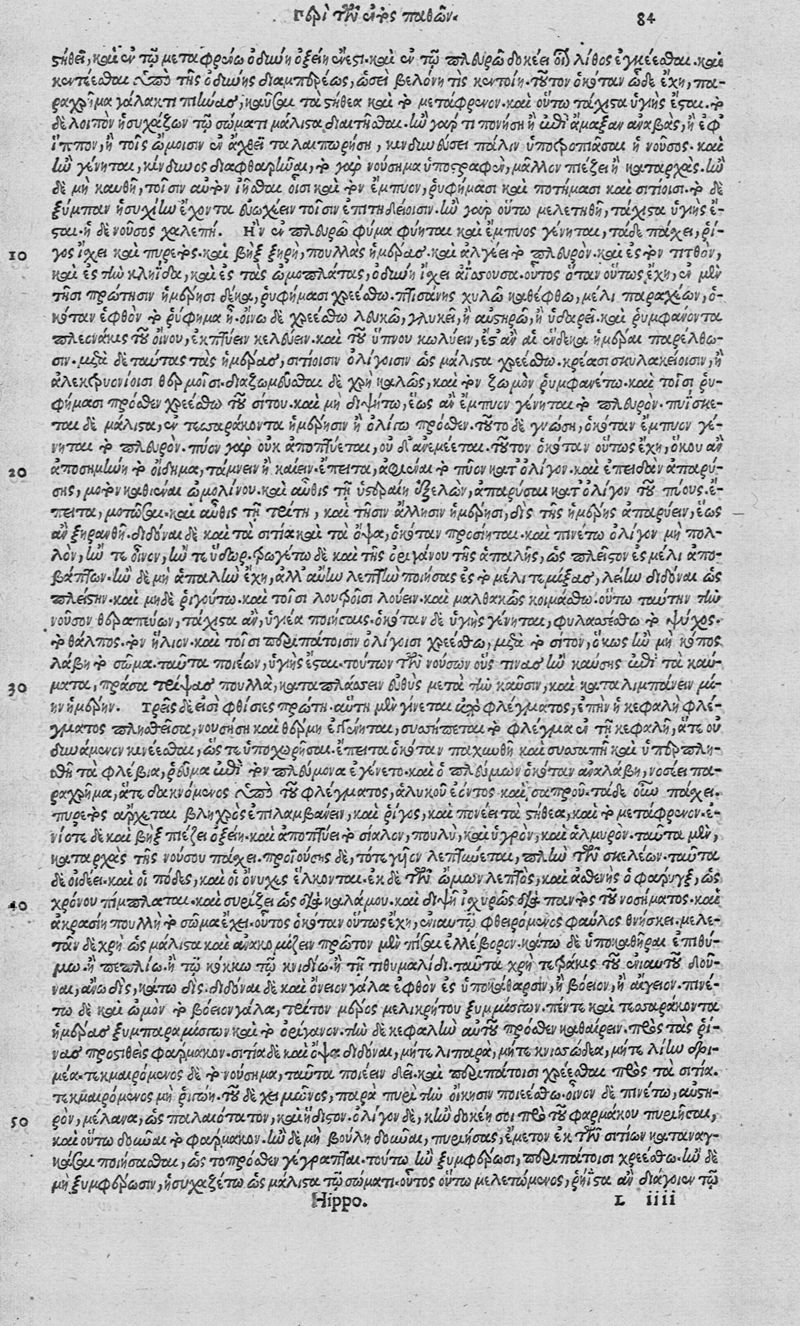 Περὶ τῶν ἐντὸς παθῶν. 84
στήθει, καὶ ἐν τῷ μεταφρένῳ ὀδύνη ὀξείη ἔνεστι. καὶ ἐν τῷ πλευρῷ δοκέει οἱ λίθος ἐγκέεσθαι. καὶ
κεντέεσθαι ὑπὸ τῆς ὀδύνης διαμπερέως, ὡσεὶ βελόνη τὶς κεντοίη. τοῦτον ὁκόταν ὧδε ἔχῃ, πα-
ραχρῆμα γάλακτι πιάνας, καῦσαι τὰ στήθεα καὶ τὸ μετάφρενον. καὶ οὕτω τάχιστα ὑγιὴς ἔσται. τὸ
δὲ λοιπὸν ἡσυχάζων τῷ σώματι μάλιστα διαιτῆσθαι. ἢν γάρ τι πονήσῃ ἢ ἐπὶ ἅμαξαν ἀναβὰς, ἢ ἐφ'
ἵππον, ἢ τοῖς ὤμοισιν ἐν ἄχθει ταλαιπωρήσῃ, κινδυνεύσει πάλιν ὑποτροπιάσαι ἡ νοῦσος. καὶ
ἢν γένηται, κίνδυνος διαφθαρῆναι, τὸ γὰρ νούσημα ὑποστραφὲν, μᾶλλον πιέζει ἢ καταρχάς. ἢν
δὲ μὴ καυθῇ, τοῖσιν αὐτέων ἰῆσθαι οἷσι καὶ τὸν ἔμπυον, ῥυφήμασι καὶ ποτήμασι καὶ σιτίοισι. τὸ δὲ
ξύμπαν ἡσυχίην ἔχοντα εὐωχέειν τοῖσιν ἐπιτηδείοισιν. ἢν γὰρ οὕτω μελετηθῇ, τάχιστα ὑγιὴς ἔ-
σται. ἡ δὲ νοῦσος χαλεπή. Ἢν ἐν πλευρῷ φῦμα φύηται καὶ ἔμπυος γένηται, τάδε πάσχει, ῥῖ-
10 γος ἴσχει καὶ πυρετὸς. καὶ βὴξ ξηρὴ, πουλλὰς ἡμέρας. καὶ ἀλγέει τὸ πλευρὸν. καὶ ἐς τὸν τιτθὸν,
καὶ ἐς τὴν κληῖδα, καὶ ἐς τὰς ὠμοπλάτας, ὀδύνη ἴσχει ἀΐσσουσα. οὗτος ὅταν οὕτως ἔχῃ, ἐν μὲν
τῇσι πρώτῃσιν ἡμέρῃσι δέκα, ῥυφήμασι χρεέσθω. πτισάνης χυλῷ καθέφθῳ, μέλι παραχέων, ὁ-
κόταν ἑφθὸν τὸ ῥύφημα ᾖ. οἴνῳ δὲ χρεέσθω λευκῷ, γλυκεῖ, ἢ αὐστηρῷ, ἢ ὑδαρεῖ. καὶ ῥυμφάνοντα
πλεονάκις τοῦ οἴνου, ἐκπτύειν κελεύειν. καὶ τοῦ ὕπνου κωλύειν, ἔστ' ἂν αἱ ἕνδεκα ἡμέραι παρέλθω-
σιν. μετὰ δὲ ταύτας τὰς ἡμέρας, σιτίοισιν ὀλίγοισιν ὡς μάλιστα χρεέσθω. κρέασι σκυλακείοισιν, ἢ
ἀλεκτρυονίοισι θερμοῖσι. διαζωμεῦσαι δὲ χρὴ καλῶς, καὶ τὸν ζωμὸν ῥυμφανέτω. καὶ τοῖσι ῥυ-
φήμασι πρόσθεν χρεέσθω τοῦ σίτου. καὶ μὴ διψήτω, ἕως ἂν ἔμπυον γένηται τὸ πλευρὸν. πυΐσκε-
ται δὲ μάλιστα, ἐν τεσσαράκοντα ἡμέρῃσιν ἢ ὀλίγῳ πρόσθεν. τούτῳ δὲ γνώσῃ, ὁκόταν ἔμπυον γέ-
νηται τὸ πλευρόν. πῦον γὰρ οὐκ ἀποπτύεται, οὐδ' ἀνεμέεται. τοῦτον ὁκόταν οὕτως ἔχῃ, ὅκου ἂν
20 ἀποσημήνῃ τὸ οἴδημα, τάμνειν ἢ καίειν. ἔπειτα, ἀφιέναι τὸ πῦον κατ' ὀλίγον. καὶ ἐπειδὰν ἀπαρύ-
σῃς, μοτὸν καθιέναι ὠμολίνου. καὶ αὖθις τῇ ὑστεραίῃ ἐξελὼν, ἀπαρύσαι κατ' ὀλίγον τοῦ πύους. ἔ-
πειτα, μοτῶσαι. καὶ αὖθις τῇ τρίτῃ, καὶ τῇσιν ἄλλῃσιν ἡμέρῃσι, δὶς τῆς ἡμέρης ἀπαρύειν, ἕως
ἂν ξηρανθῇ. διδόναι δὲ καὶ τὰ σιτία καὶ τὰ ὄψα, ὁκόταν προσίηται. καὶ πινέτω ὀλίγον μὴ πολ-
λὸν, ἤν τε οἶνον, ἤν τε ὕδωρ. τρωγέτω δὲ καὶ τῆς ὀριγάνου τῆς ἁπαλῆς, ὡς πλεῖστον ἐς μέλι ἀπο-
βάπτων. ἢν δὲ μὴ ἁπαλὴν ἔχῃ, ἀλλ' αὔην λεπτὴν ποιήσας ἐς τὸ μέλι τε μίξας, λείην διδόναι ὡς
πλείστην. καὶ μηδὲ ῥιγούτω. καὶ τοῖσι λουτροῖσι λούειν. καὶ μαλθακῶς κοιμάσθω. οὕτω ταύτην τὴν
νοῦσον θεραπεύων, τάχιστα ἂν, ὑγιέα ποιήσαις. ὁκόταν δὲ ὑγιὴς γένηται, φυλασσέσθω τὸ ψύχος.
τὸ θάλπος. τὸν ἥλιον. καὶ τοῖσι περιπάτοισιν ὀλίγοισι χρεέσθω, μετὰ τὸ σίτον, ὅκως ἢν μὴ κόπος
λάβῃ τὸ σῶμα. ταῦτα ποιέων, ὑγιὴς ἔσται. τούτων τῶν νούσων οὕς τινας ἢν καύσῃς ἐπὶ τὰ καύ-
30 ματα, πράσα τρίψας πουλλὰ, καταπλάσσειν εὐθὺς μετὰ τὴν καῦσιν, καὶ καταλιμπάνειν μί-
ην ἡμέρην. Τρεῖς δέ εἰσὶ φθίσιες πρώτη. αὕτη μὲν γίνεται ἀπὸ φλέγματος, ἐπὴν ἡ κεφαλὴ φλέ-
γματος πλησθεῖσα, νουσήσῃ καὶ θέρμη ἐγγένηται, συσσήπεται τὸ φλέγμα ἐν τῇ κεφαλῇ, ἅτε οὐ
δυνάμενον κινέεσθαι, ὥς τε ὑποχωρῆσαι. ἔπειτα ὁκόταν παχυνθῇ καὶ συσσαπῇ καὶ ὑπερπλη-
σθῇ τὰ φλέβια, ῥεῦμα ἐπὶ τὸν πλεύμονα ἐγένετο. καὶ ὁ πλεύμων ὁκόταν ἀναλάβῃ, νοσέει πα-
ραχρῆμα, ἅτε δακνόμενος ὑπὸ τοῦ φλέγματος, ἁλυκοῦ ἐόντος καὶ σαπροῦ. τάδε οὖν πάσχει.
πυρετὸς ἄρχεται βληχρὸς ἐπιλαμβάνειν, καὶ ῥῖγος, καὶ πονέει τὰ στήθεα, καὶ τὸ μετάφρενον. ἐ-
νίοτε δὲ καὶ βὴξ πιέζει ὀξείη. καὶ ἀποπτύει τὸ σίαλον, πουλὺ, καὶ ὑγρὸν, καὶ ἁλμυρόν. ταῦτα μὲν,
καταρχὰς τῆς νούσου πάσχει. προϊούσης δὲ, τότε γυῖον λεπτύνεται, πλὴν τῶν σκελέων. ταῦτα
δὲ οἰδέει. καὶ οἱ πόδες, καὶ οἱ ὄνυχες ἕλκονται. ἐκ δὲ τῶν ὤμων λεπτὸς, καὶ ἀσθενής ὁ φάρυγξ, ὡς
40 χρόνου πίμπλαται. καὶ συρίζει ὡς διὰ καλάμου. καὶ διψῇ ἰσχυρῶς διὰ παντὸς τοῦ νοσήματος. καὶ
ἀκρασίη πουλλὴ τὸ σῶμα ἔχει. οὗτος ὁκόταν οὕτως ἔχῃ, ἐνιαυτῷ φθειρόμενος φαύλως θνήσκει. μελε-
τᾶν δὲ χρὴ ὡς μάλιστα καὶ ἀνακομίζειν πρῶτον μὲν πῖσαι ἐλλέβορον. κάτω δὲ ὑποκαθῆραι ἐπιθύ-
μῳ. ἢ πεπλίῳ. ἢ τῷ κόκκῳ τῷ κνιδίῳ. ἢ τῇ τιθυμαλίδι. ταῦτα χρὴ τετράκις τοῦ ἐνιαυτοῦ δοῦ-
ναι, ἄνω δὶς, κάτω δὶς. διδόναι δὲ καὶ ὄνειον γάλα ἑφθὸν ἐς ὑποκάθαρσιν, ἢ βόειον, ἢ αἴγειον. πινέ-
τω δὲ καὶ ὠμὸν τὸ βόειον γάλα, τρίτον μέρος μελικρήτου ξυμμίσγων. πέντε καὶ τεσσαράκοντα
ἡμέρας ξυμπαραμίσγων καὶ τὸ ὀρίγανον. τὴν δὲ κεφαλὴν αὐτοῦ πρόσθεν καθαίρειν. πρὸς τὰς ῥῖ-
νας προστιθεὶς φάρμακον. σιτία δὲ καὶ ὄψα διδόναι, μήτε λιπαρὰ, μήτε κνισώδεα, μήτε λίην δρι-
μέα. τεκμαιρόμενος δὲ τὸ νούσημα, ταῦτα ποιέειν δεῖ. καὶ περιπάτοισι χρέεσθαι πρὸς τὰ σιτία.
τεκμαιρόμενος μὴ ῥιγώῃ. τοῦ δὲ χειμῶνος, παρὰ πυρὶ τὴν οἴκησιν ποιεέσθω. οἶνον δὲ πινέτω, αὐστη-
50 ρὸν, μέλανα, ὡς παλαιότατον, καὶ ἥδιστον. ὀλίγον δὲ, κἢν δοκέῃ σοι πρὸ τοῦ φαρμάκου πυριῆσαι,
καὶ οὕτω δοῦναι τὸ φάρμακον. ἢν δὲ μὴ βούλῃ δοῦναι, πυριήσας, ἔμετον ἐκ τῶν σιτίων καταναγ-
κάσαι ποιήσασθαι, ὡς τοπρόσθεν γέγραπται. τούτω ἢν ξυμφέρωσι, περιπάτοισι χρεέσθω. ἢν δὲ
μὴ ξυμφέρωσιν, ἡσυχαζέτω ὡς μάλιστα τῷ σώματι. οὗτος οὕτω μελετώμενος, ῥήϊστα ἂν διάγοιεν τῷ
Hippo. L iiii